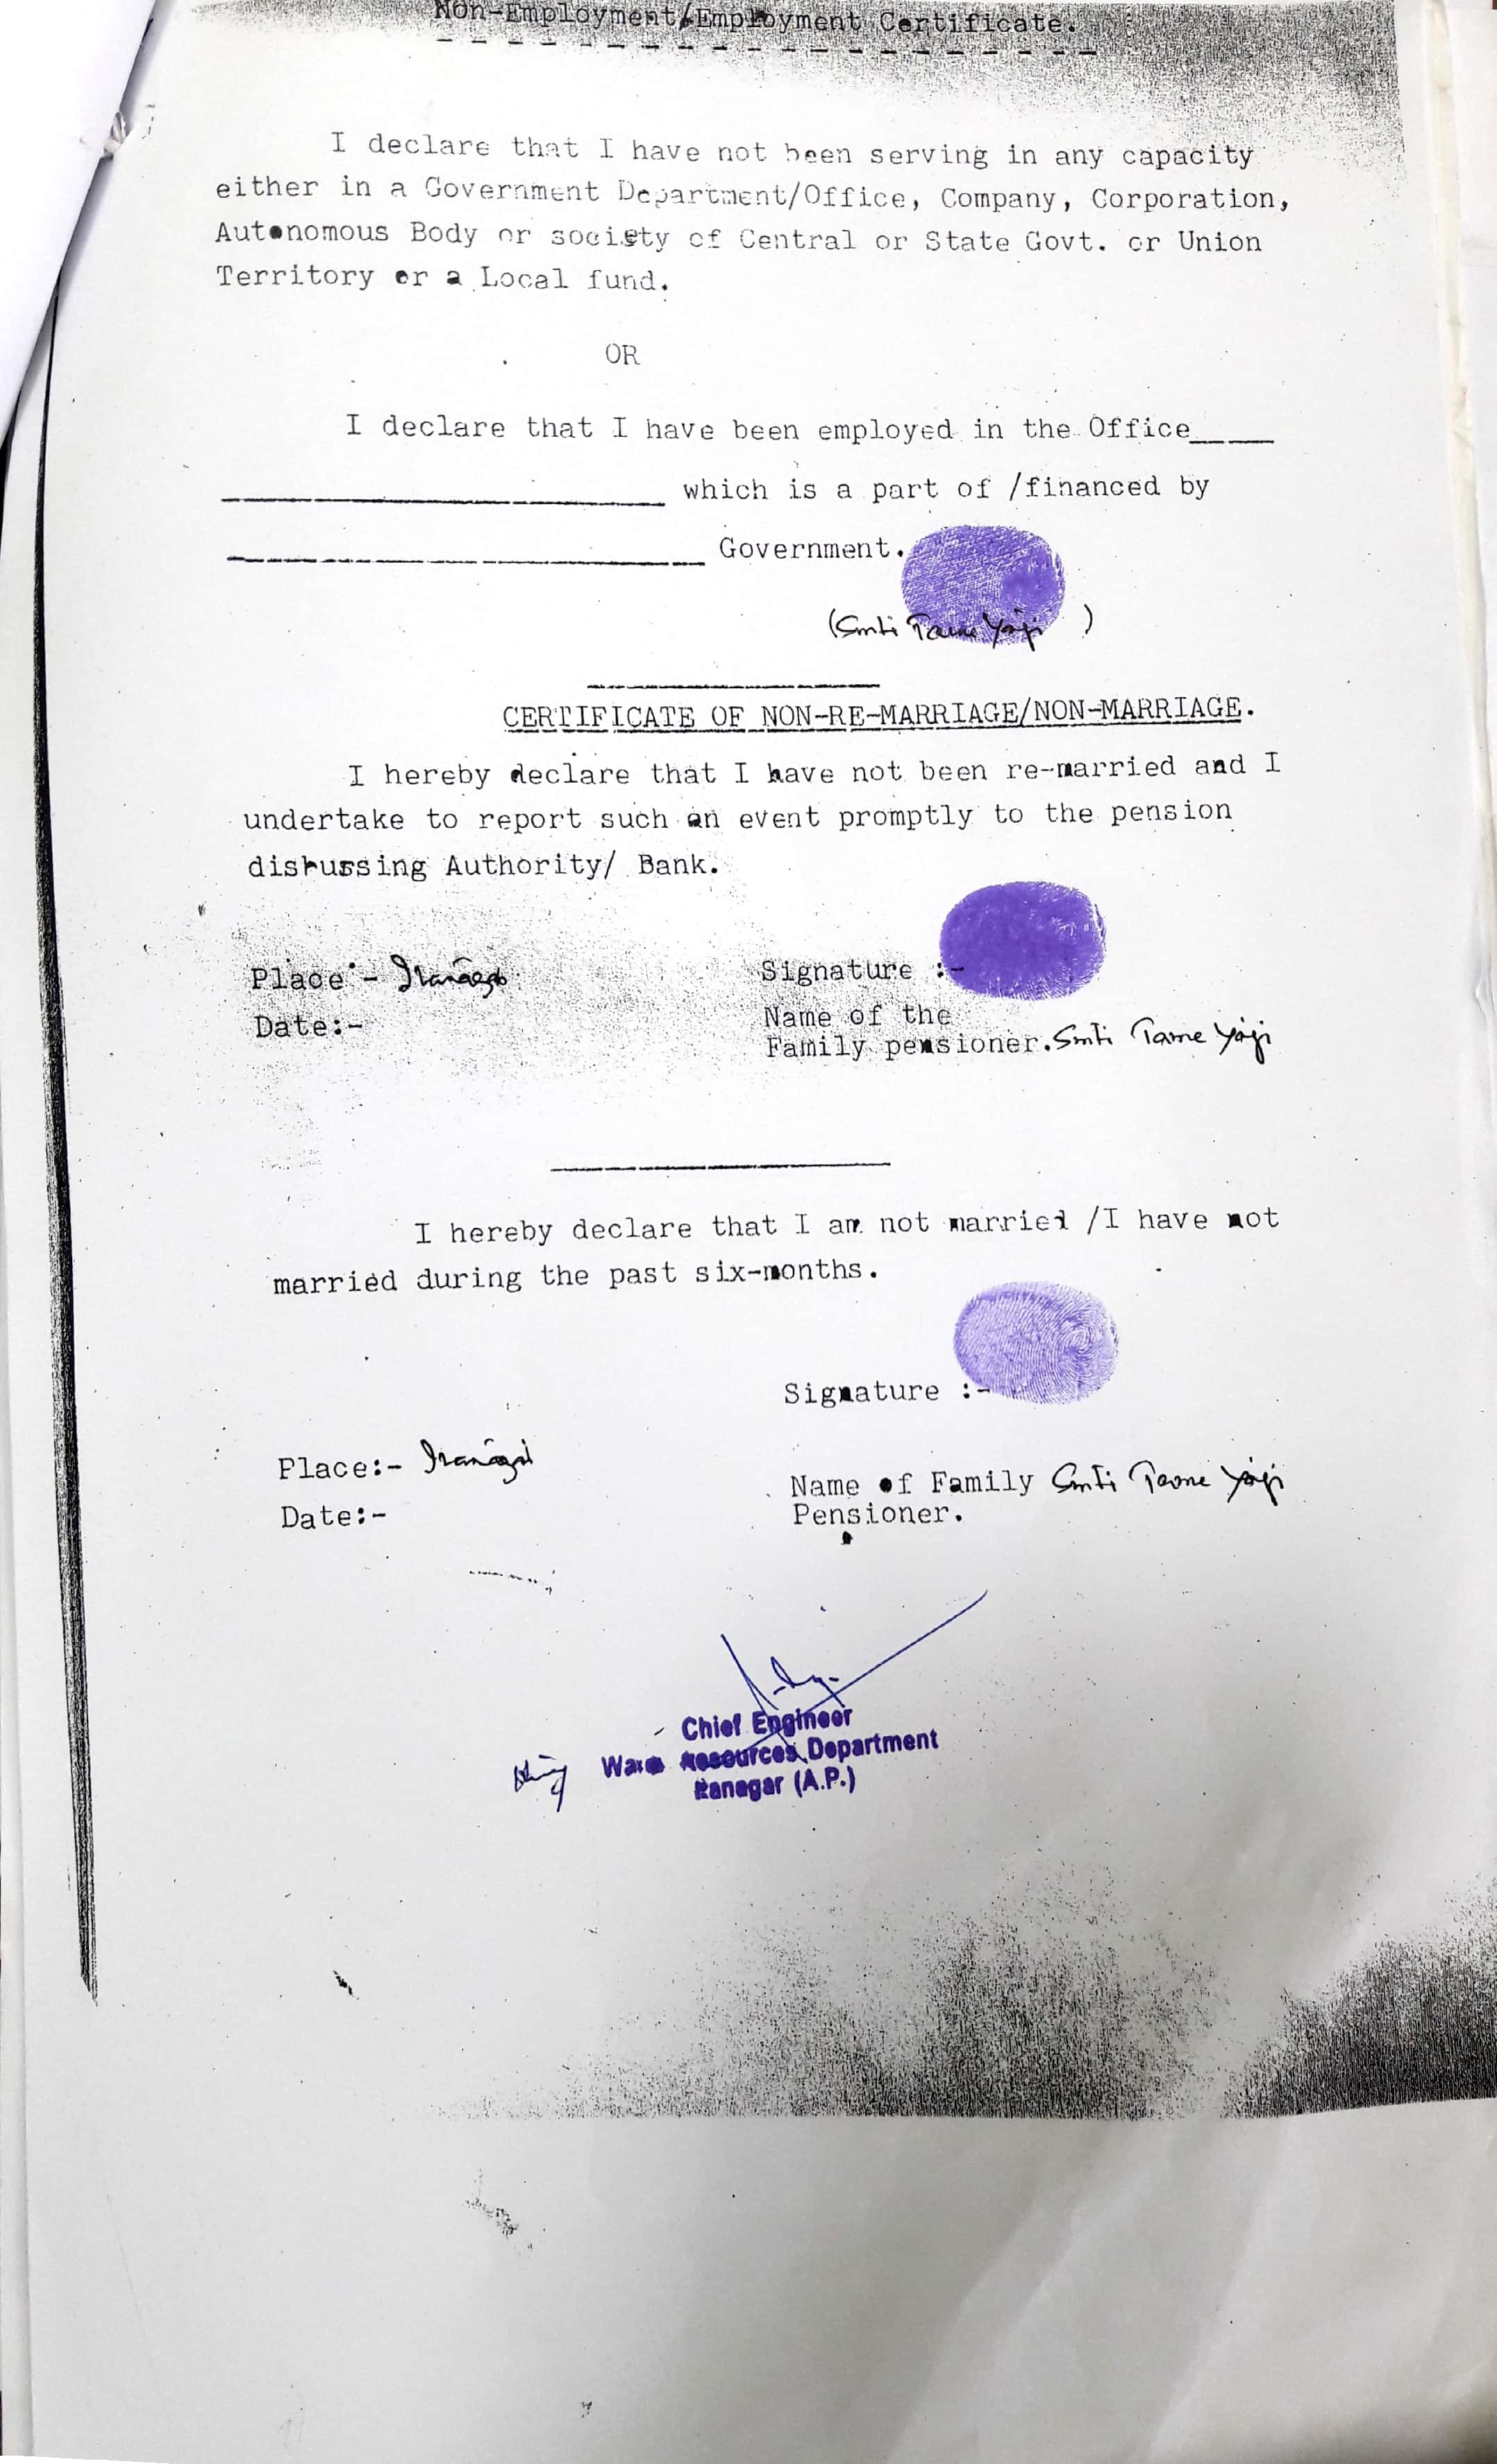 Non-Employment/Employment Certificate.
I declare that I have not been serving in any capacity
either in a Government Department/Office, Company, Corporation,
Autonomous Body or society of Central or State Govt. or Union
Territory or a Local fund.
OR
I declare that I have been employed in the Office_____
which is a part of /financed by
Government.
(Smti Tame Yaji )
CERTIFICATE OF NON-RE-MARRIAGE/NON-MARRIAGE.
I hereby declare that I have not been re-married and I
undertake to report such an event promptly to the pension
disbussing Authority/ Bank.
Place:-
Signature :-
Date:-
Name of the
Family pensioner. Smti Tame Yaji
I hereby declare that I am not married /I have not
married during the past six-months.
Signature :-
Place:-
Name of Family Smti Tame Yaji
Date:-
Pensioner.
Chief Engineer
Resources Department
(A.P.)